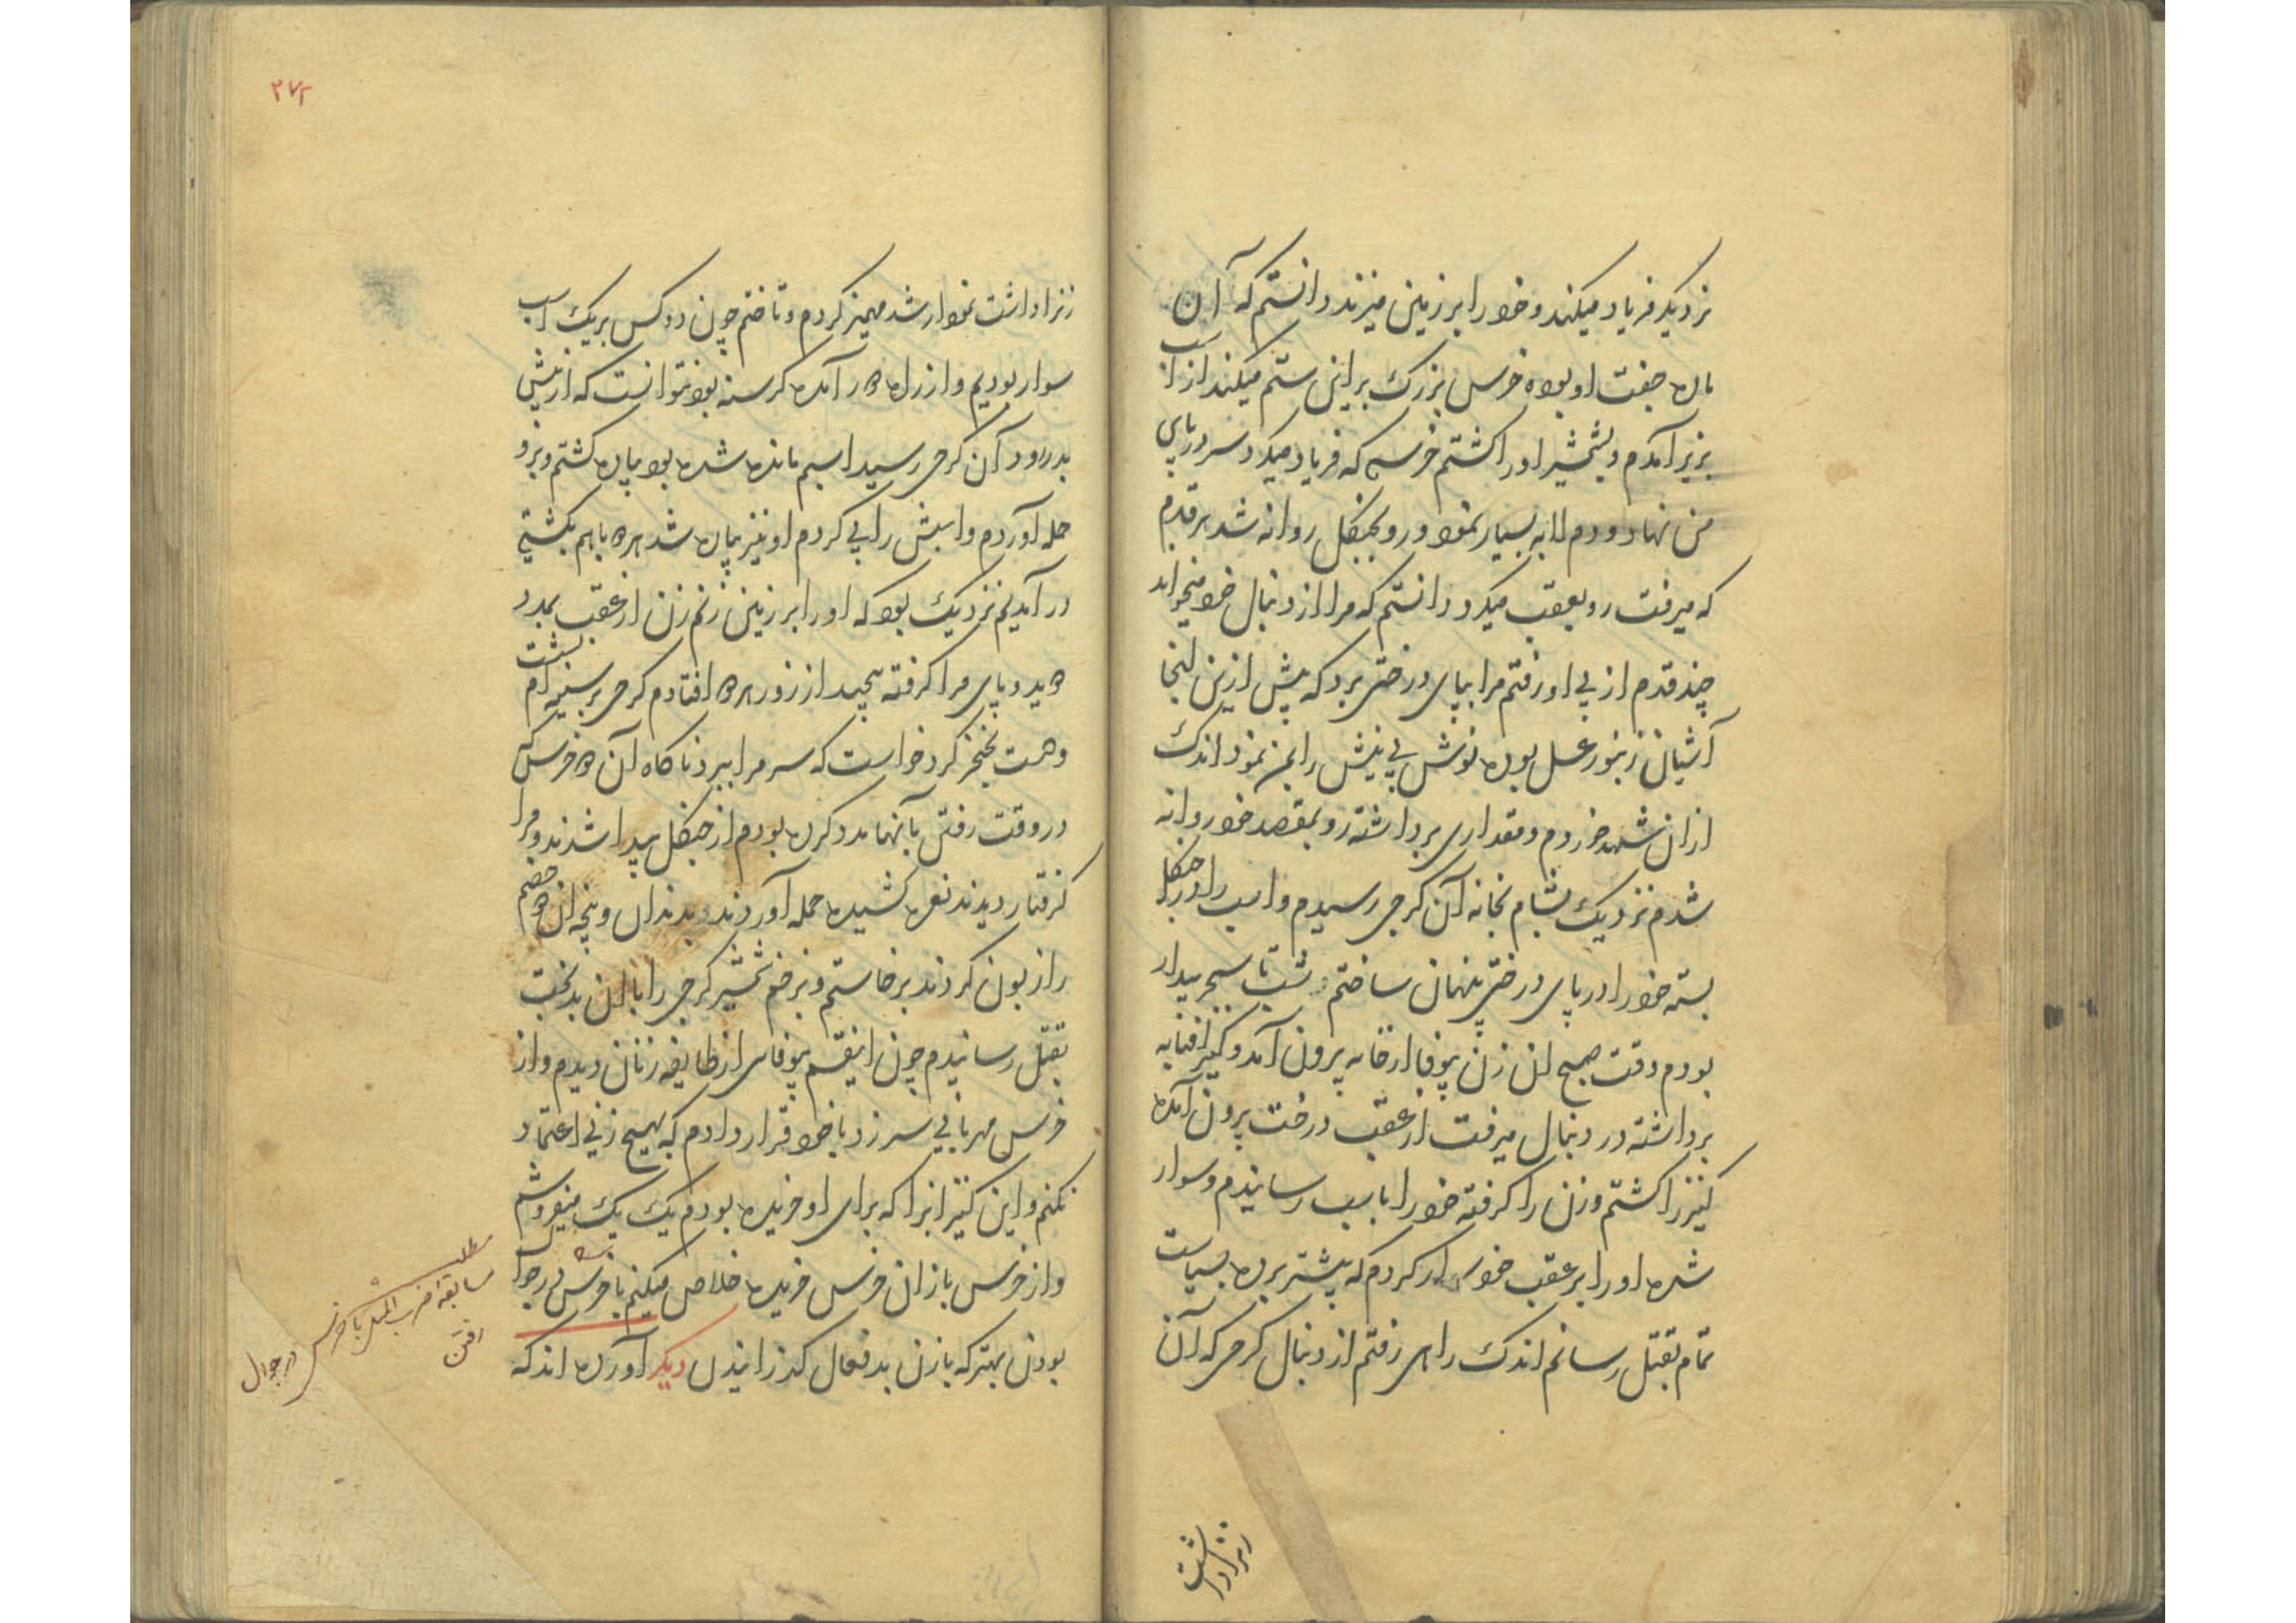 نزدیک فریاد میکند و خود را بر زمین میزند دانستم که آن
ماده جفت او بوده خرس بزرگ بر این ستم میکند از اسب
بزیر آمدم و بشمشیر او را کشتم خرسی که فریاد میکرد سر در پای
من نهاد و دم لابه بسیار نمود و رو بجنگل روانه شد هر قدم
که میرفت رو بعقب میکرد دانستم که مرا از دنبال خود میخواند
چند قدم از پی او رفتم مرا بپای درختی برد که پیش ازین اینجا
آشیان زنبور عسل بوده نوش بی نیش را بمن نمود اندک
ازان شهد خوردم و مقداری برداشته رو بمقصد خود روانه
شدم نزدیک بشام بخانه آن گرجی رسیدم و اسب را در جنگل
بسته خود را در پای درختی پنهان ساختم شب تا سحر بیدار
بودم وقت صبح ان زن بیوفا از خانه بیرون آمد و کنیز آفتابه
برداشته در دنبال میرفت از عقب درخت بیرون آمده
کنیز را کشتم و زن را گرفته خود را باسب رسانیدم و سوار
شده او را بر عقب خود سوار کردم که بیشتر برده بسیاست
تمام بقتل رسانم اندک راهی رفتم از دنبال گرجی که آن
زنرا داشت
۲۷۲
زنرا داشت نمودار شد مهمیز کردم و تاختم چون دو کس بر یک اسب
سوار بودیم و از راه در آمده گرسنه بود نتوانست که از پیش
بدر رود آن گرجی رسید اسبم مانده شده بود پیاده گشتم و برو
حمله آوردم و اسبش را پی کردم او نیز پیاده شد هر دو باهم بکشتی
در آمدیم نزدیک بود که او را بر زمین زنم زن از عقب بمدد
دوید و پای مرا گرفته پیچید از زور هر دو افتادم گرجی بر سینه ام نشست
و دست بخنجر کرد خواست که سر مرا ببرد ناگاه آن دو خرس که
در وقت رفتن بآنها مدد کرده بودم از جنگل پیدا شدند و مرا
گرفتار دیدند نعره کشیده حمله آوردند و بدندان و پنجه ان دو خصم
را زبون کردند برخاستم و بزخم شمشیر گرجی را با ان بدبخت
بقتل رسانیدم چون اینقسم بیوفای از طایفه زنان دیدم و از
خرس مهربانی سر زد با خود قرار دادم که بهیچ زنی اعتماد
نکنم و این کنیزانرا که برای او خریده بودم یک یک میفروشم
و از خرس بازان خرس خریده خلاص میکنم با خرس در جوال
بودن بهتر که با زن بدفعال گذرانیدن دیگر آورده اند که
مطلب
سابقه ضرب المثل با خرس در جوال
رفتن